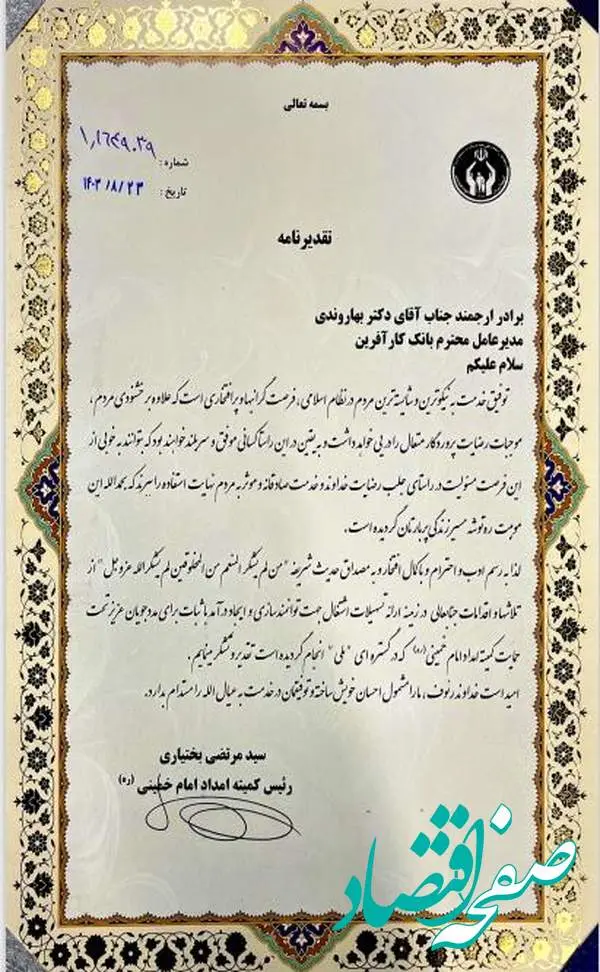 بسمه تعالی
شماره : ۱,۱۶۴۹۰۳۹
تاریخ : ۱۴۰۳/۸/۲۳
تقدیرنامه
برادر ارجمند جناب آقای دکتر بهاروندی
مدیرعامل محترم بانک کارآفرین
سلام علیکم
توفیق خدمت به نیکوترین و شایسته‌ترین مردم در نظام اسلامی، فرصت گرانبها و پرافتخاری است که علاوه بر خشنودی مردم،
موجبات رضایت پروردگار متعال را در پی خواهد داشت و به یقین در این راستا کسانی موفق و سربلند خواهند بود که بتوانند به خوبی از
این فرصت مسئولیت در راستای جلب رضایت خداوند و خدمت صادقانه و موثر به مردم نهایت استفاده را ببرند که بحمدالله این
موهبت ره‌توشه مسیر زندگی پربارتان گردیده است.
لذا به رسم ادب و احترام و با کمال افتخار و به مصداق حدیث شریفه "من لم یشکر المنعم من المخلوقین لم یشکر الله عزوجل" از
تلاشها و اقدامات جنابعالی در زمینه ارائه تسهیلات اشتغال جهت توانمندسازی و ایجاد درآمد با ثبات برای مددجویان عزیز تحت
حمایت کمیته امداد امام خمینی (ره) که در گستره ای "ملی" انجام گردیده است تقدیر و تشکر مینمایم.
امید است خداوند رئوف، ما را مشمول احسان خویش ساخته و توفیقمان در خدمت به عیال الله را مستدام بدارد.
سید مرتضی بختیاری
رئیس کمیته امداد امام خمینی (ره)
صفحه اقتصاد